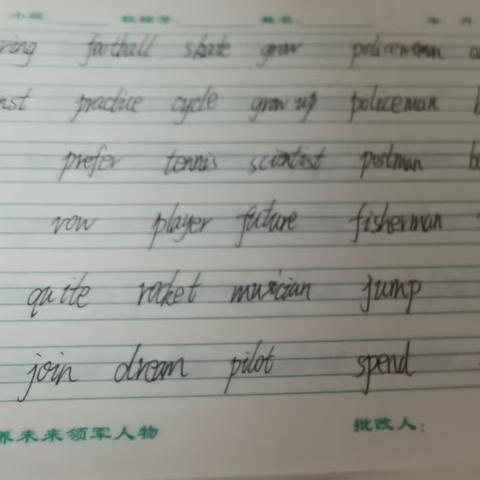 football skate grow policewoman
practice cycle grow up policeman
prefer tennis scientist postman
row player future fisherman
quite rocket musician jump
join dream pilot spend
养未来领军人物 批改人: